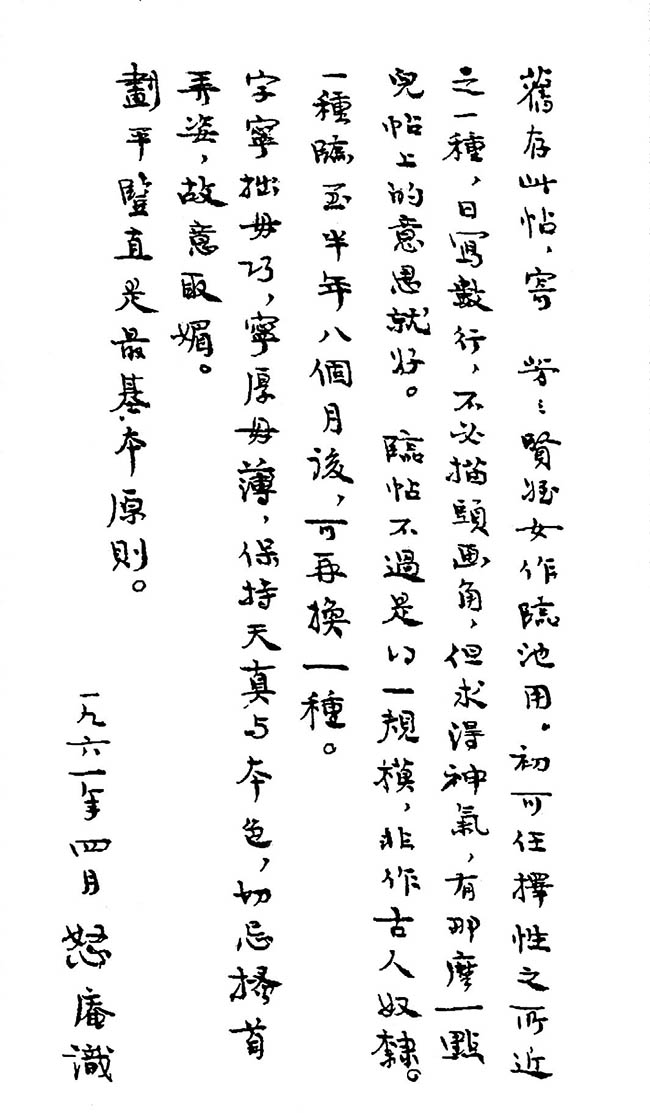 舊存此帖，寄　勞〻賢姪女作臨池用。初可任擇性之所近
之一種，日寫數行，不必描頭畫角，但求得神氣，有那麼一點
兒帖上的意思就好。臨帖不過是得一規模，非作古人奴隸。
一種臨至半年八個月後，可再換一種。
字寧拙毋巧，寧厚毋薄，保持天真与本色，切忌搔首
弄姿，故意取媚。
劃平豎直是最基本原則。
一九六一年四月 怒庵識